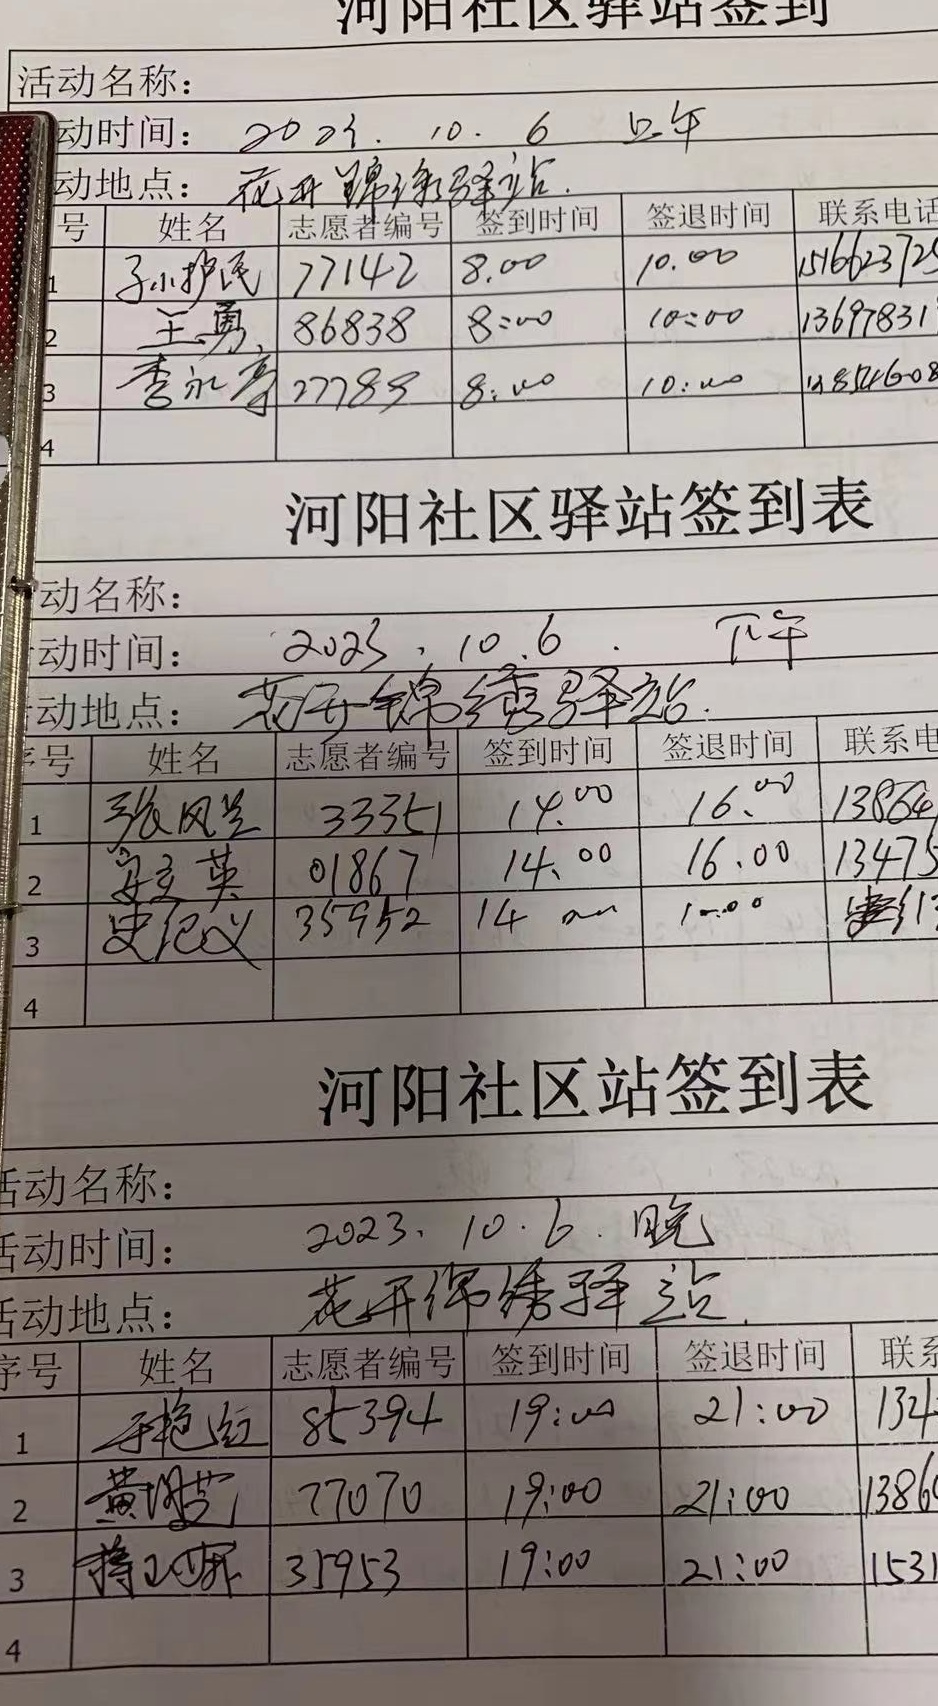 河阳社区驿站签到
活动名称：
动时间： 2023. 10. 6 上午
动地点： 花开锦绣驿站.
号 姓名 志愿者编号 签到时间 签退时间 联系电话
1 孙护民 77142 8.00 10.00
2 王勇 86838 8:00 10:00 13697831
3 李永亭 27789 8:00 10:00
4
河阳社区驿站签到表
动名称：
动时间： 2023. 10.6. 下午
动地点： 花开锦绣驿站.
序号 姓名 志愿者编号 签到时间 签退时间 联系电
1 张凤兰 33351 14.00 16.00 13864
2 英 01867 14.00 16.00 13475
3 史纪义 35952 14
4
河阳社区站签到表
活动名称：
活动时间： 2023. 10.6. 晚
活动地点： 花开绵绣驿站.
序号 姓名 志愿者编号 签到时间 签退时间 联系
1 于艳红 85394 19:00 21:00 134
2 黄 77070 19:00 21:00 1386
3 35953 19:00 21:00 1531
4